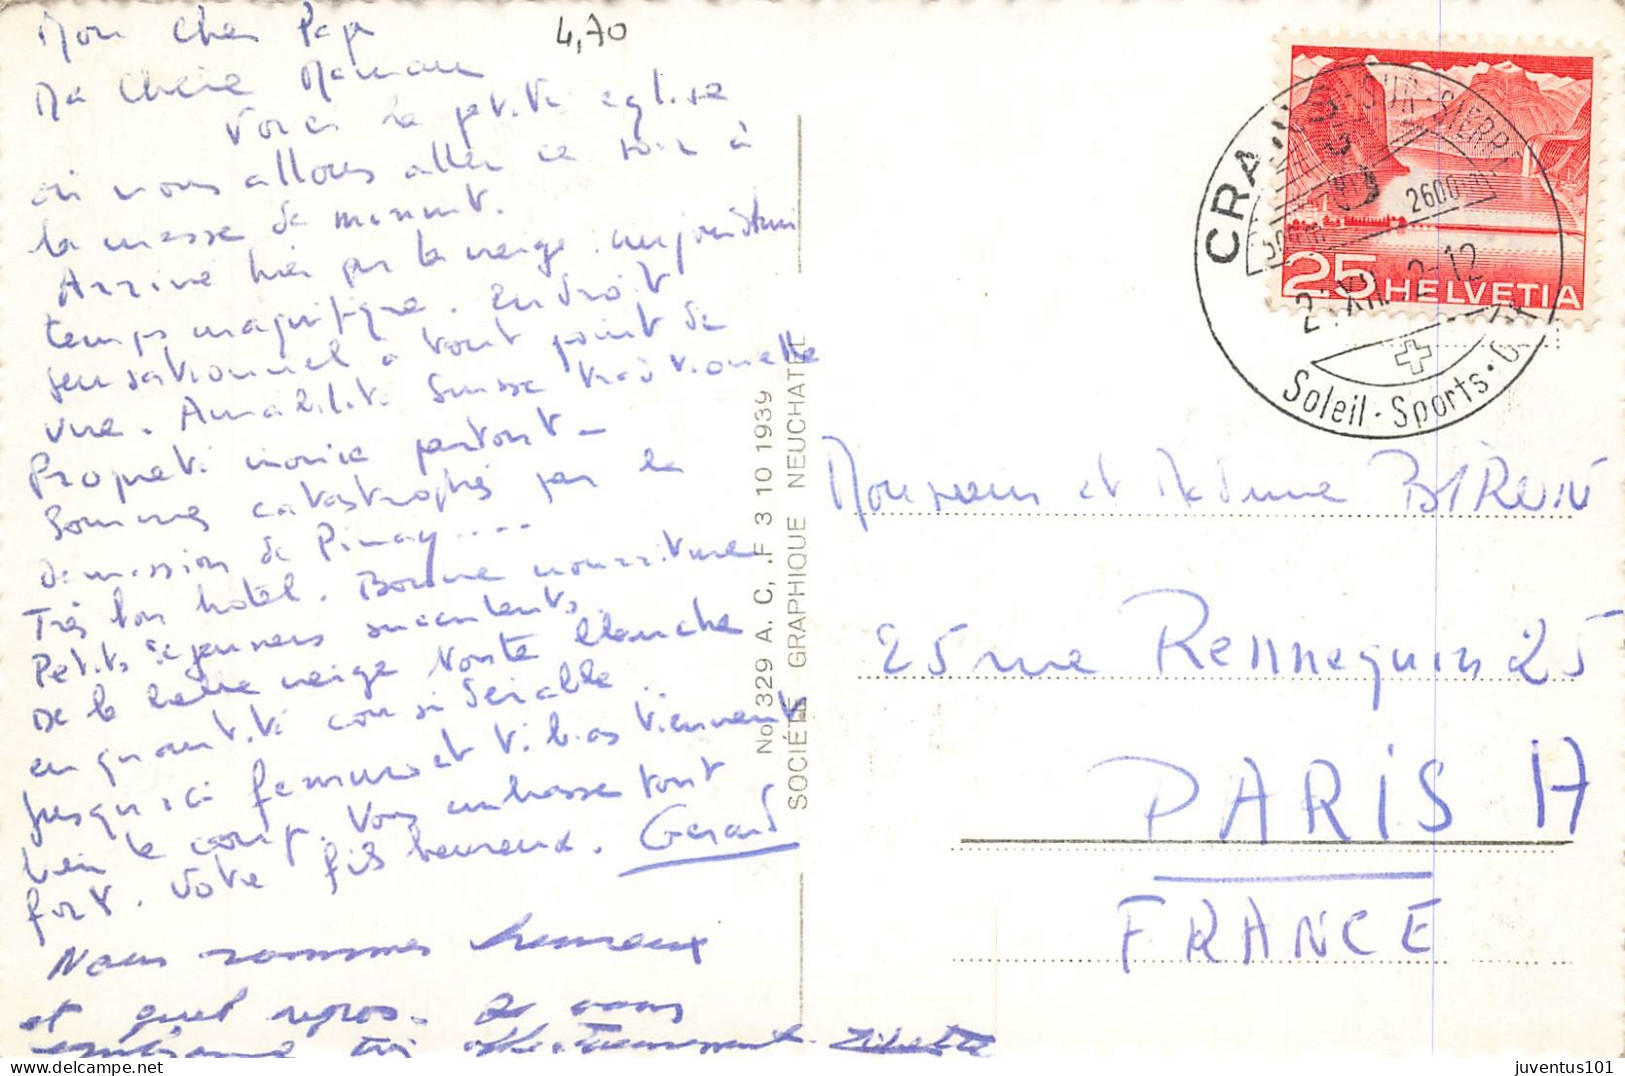 4,70
Mon Cher Papa
Ma Chérie Maman
Voici la petite eglise
où nous allons aller ce soir à
la messe de minuit.
Arrivé hier par la neige. aujourd'hui
temps magnifique. Endroit
sensationnel à tout point de
vue. Amabilité Suisse traditionelle
Propreté inouie partout -
Sommes catastrophés par la
démission de Pinay....
Très bon hotel. Bonne nourriture
Petits dejeuners succulents.
De la belle neige toute blanche
en quantité considérable
Jusqu'ici femurs et tibias tiennent
bien le coup. Vous embrasse tout
fort. Votre fils heureux. Gerard
Nous sommes heureux
et quel repos. Je vous
embrasse très affectueusement.
No. 329 A. C, .F 3 10 1939
SOCIÉTÉ GRAPHIQUE NEUCHATEL
CRANS-SUR-SIERRE
2600m
2 XII 2-12
Soleil · Sports ·
25 HELVETIA
Monsieur et Madame
25 rue Rennequin 25
PARIS 17
FRANCE
juventus101